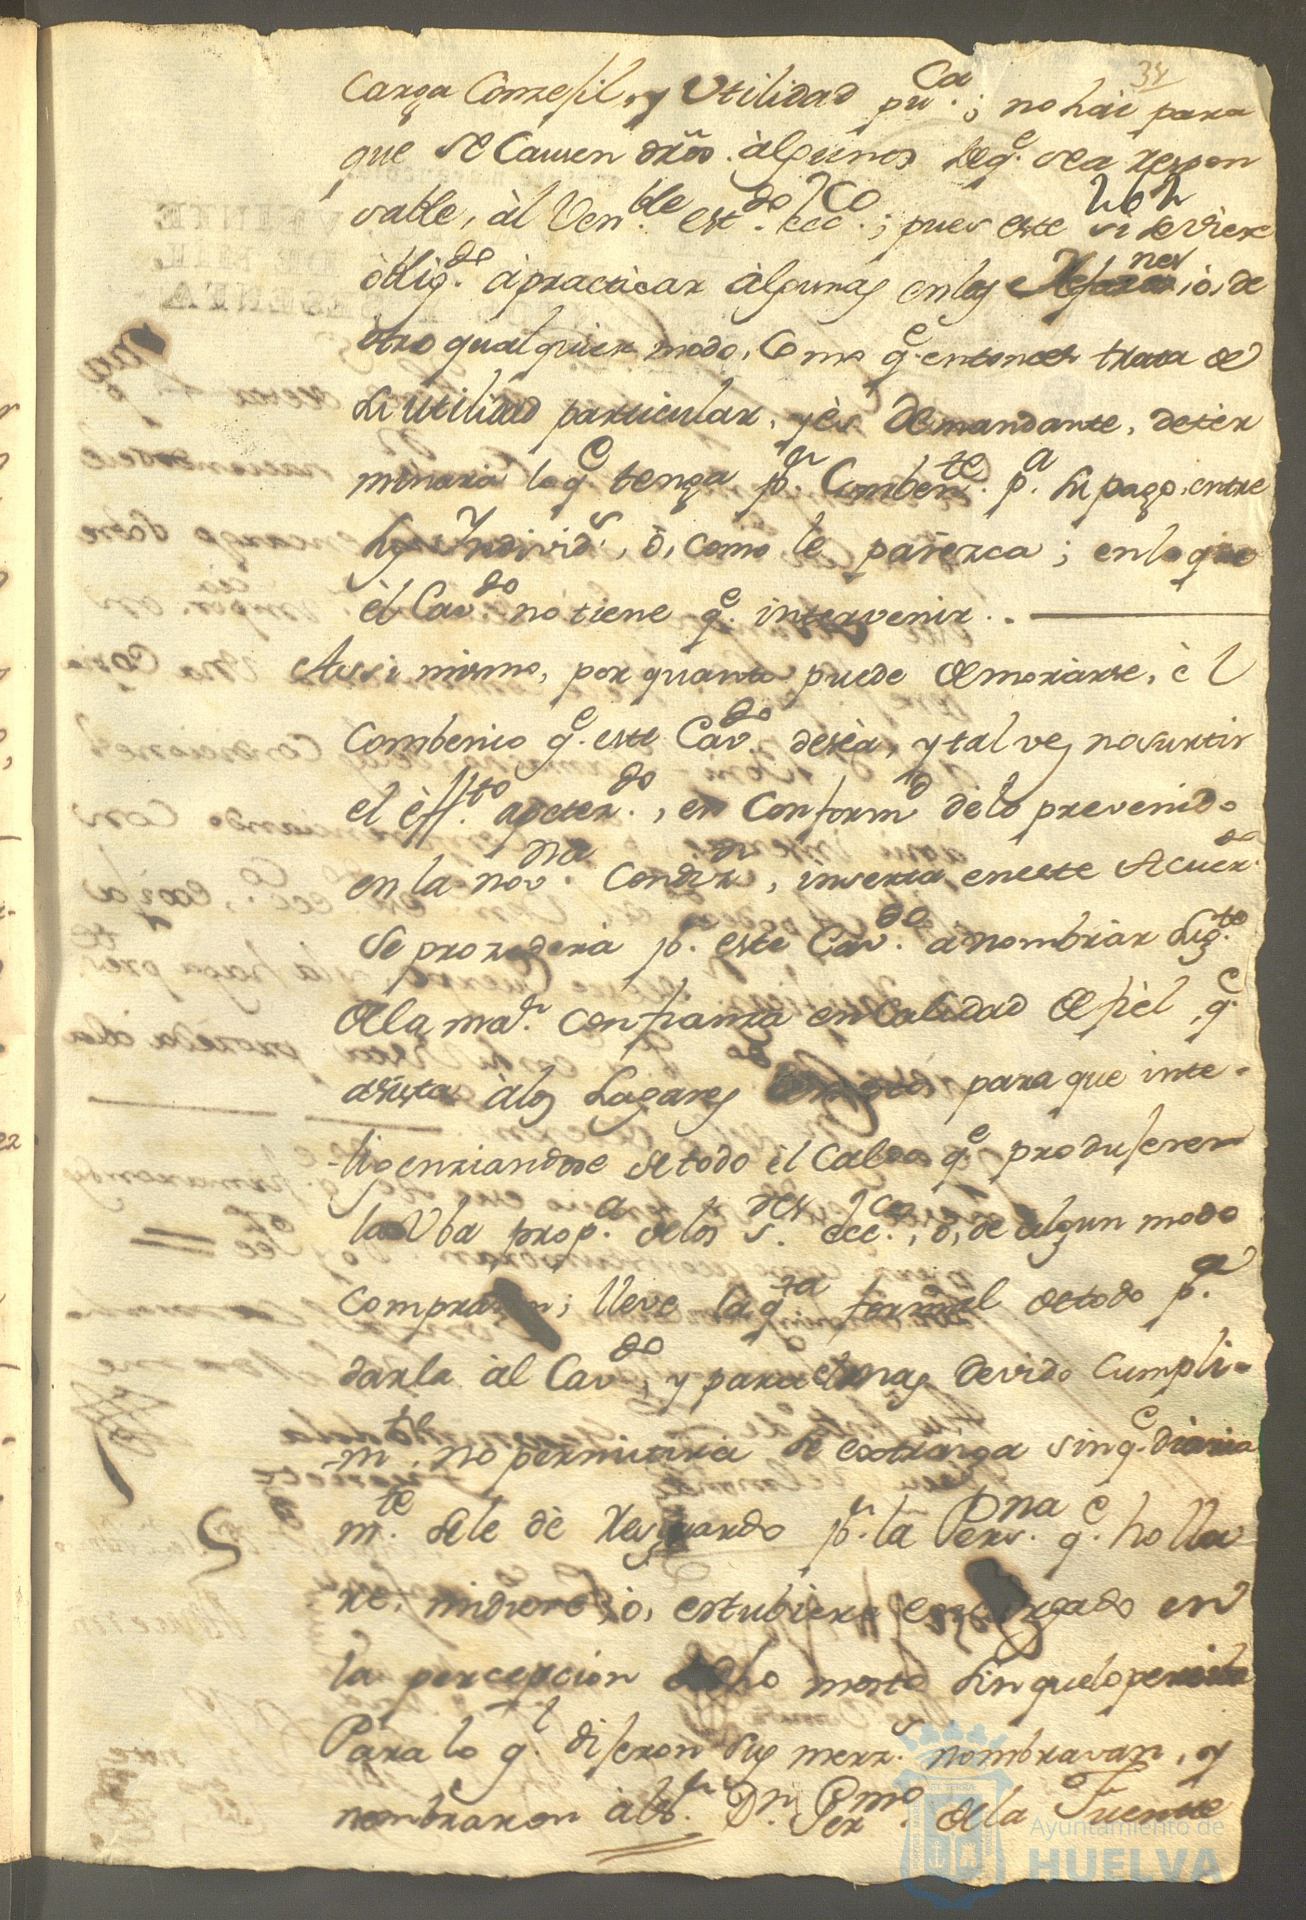 34
Carga Conzesil, y Utilidad pu.ca; no hai para
que se Causen dros. àlgunos de q.e sea respon
sable, àl Ven.ble est.do ecc.co; pues este si se viere
262
òblig.do àpracticar àlgunas en las, ò, de
otro qualquier modo, Como q.e entonces trata de
su utilidad particular, y ès demandante, deter
minarà lo q.e tenga p.r Comben.te p.a su pago, entre
sus Yndivid.s, ò, como le parezca; en lo que
èl Cav.do no tiene q.e intervenir..
Assi mismo, por quanto puede demorarse, èl
Combenio q.e este Cav.do desèa, y tal vez no surtir
el èff.to apeter.do, en Conform.d dèlo prevenido
en la nov.na Condiz.n, inserta en este Acuer.do
se prozederà p.r este Cav.do a nombràr sug.to
dela ma.r Confianza en Calidad de fièl, q.e
asista àlos Lagares para que inte-
-ligenziandose de todo èl Caldo q.e produseren
la Uba prop.a delos s.res ecc.cos, ò, de àlgun modo
compraren; lleve la q.ta formal de todo p.a
darla àl Cav.do, y para el mas devido Cumpli-
-m.to, no permitirà se extraiga sin q.e diaria
m.te se le dè Resguardo p.r la Pers.na q.e holla
re, midiere, ò, estubiere encargado en
la percepcion dho mosto sin que lo permita
Para lo q.l diseron sus merz.s nombravan, y
nombraron àl s.r Dn. Ger.mo dela Fuente
Ayuntamiento de
HUELVA